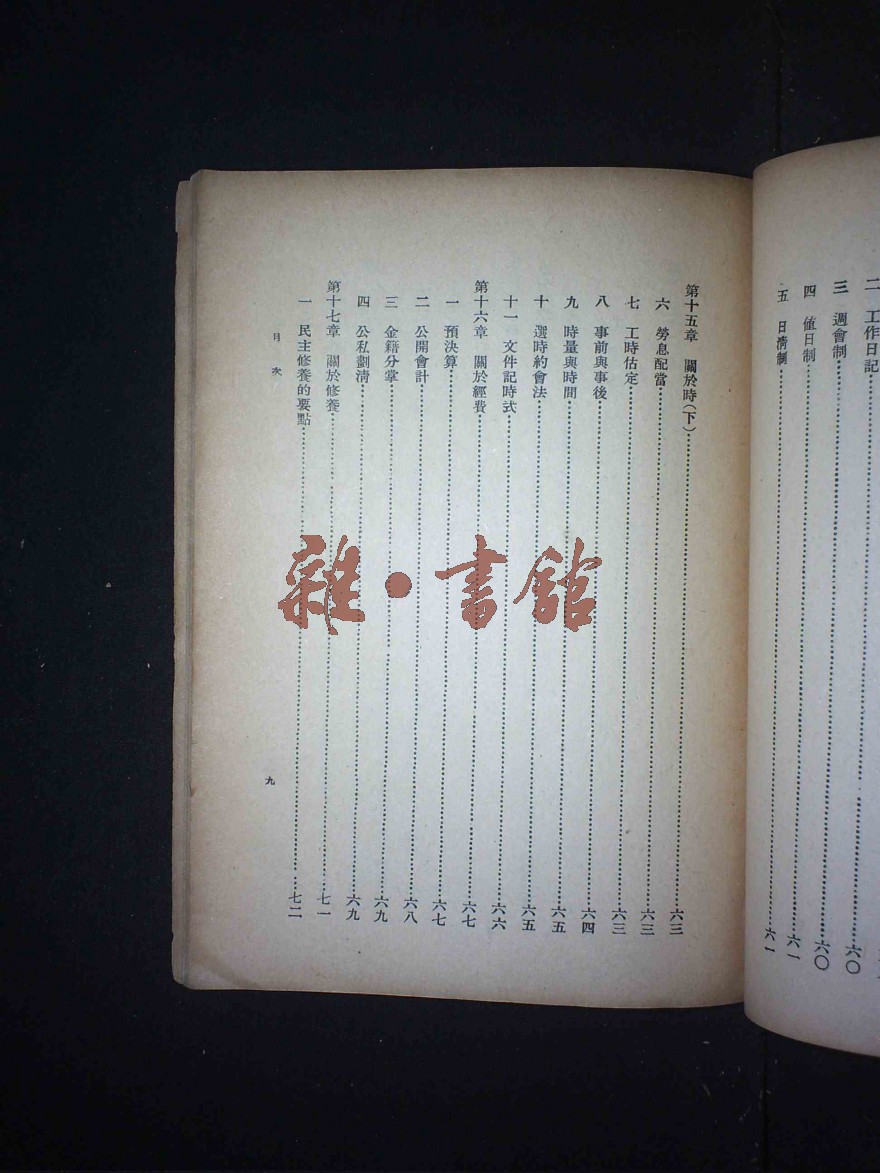 二　工作日記……六〇
三　週會制……六〇
四　値日制……六一
五　日淸制……六一
第十五章　關於時（下）……六三
六　勞息配當……六三
七　工時估定……六三
八　事前與事後……六四
九　時量與時間……六五
十　選時約會法……六五
十一　文件記時式……六六
第十六章　關於經費……六七
一　預決算……六七
二　公開會計……六八
三　金籍分掌……六九
四　公私劃淸……六九
第十七章　關於修養……七一
一　民主修養的要點……七二
目次
九
雜•書館